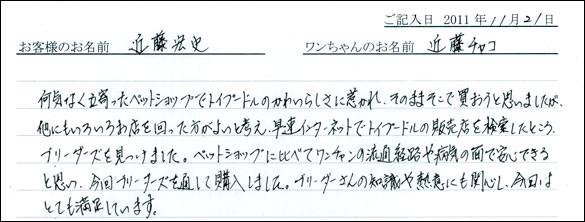 ご記入日 2011年11月21日
お客様のお名前 近藤宏史 ワンちゃんのお名前 近藤チャコ
何気なく立寄ったペットショップでトイプードルのかわいらしさに惹かれ、そのままそこで買おうと思いましたが、
他にもいろいろお店を回った方がよいと考え、早速インターネットでトイプードルの販売店を検索したところ、
ブリーダーズを見つけました。ペットショップに比べてワンチャンの流通経路や病気の面で安心できる
と思い、今回ブリーダーズを通して購入しました。ブリーダーさんの知識や熱意にも関心し、今回は
とても満足しています。